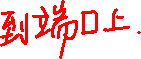 到端口上.